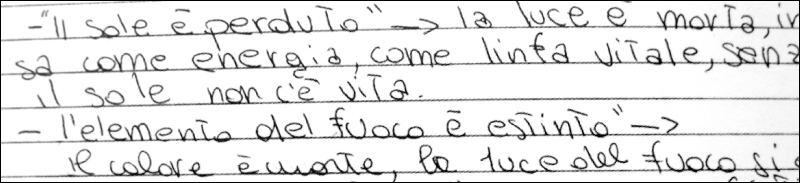 -"Il sole è perduto" -> la luce è morta, in
sa come energia, come linfa vitale, senz
il sole non c'è vita.
- l'elemento del fuoco è estinto" ->
il calore è morte, la luce del fuoco si